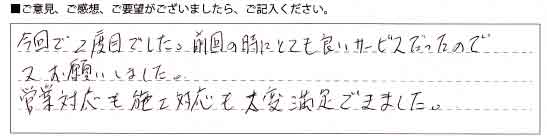 ■ご意見、ご感想、ご要望がございましたら、ご記入ください。
今回で2度目でした。前回の時にとても良いサービスだったので
又お願いしました。
営業対応も施工対応も大変満足できました。